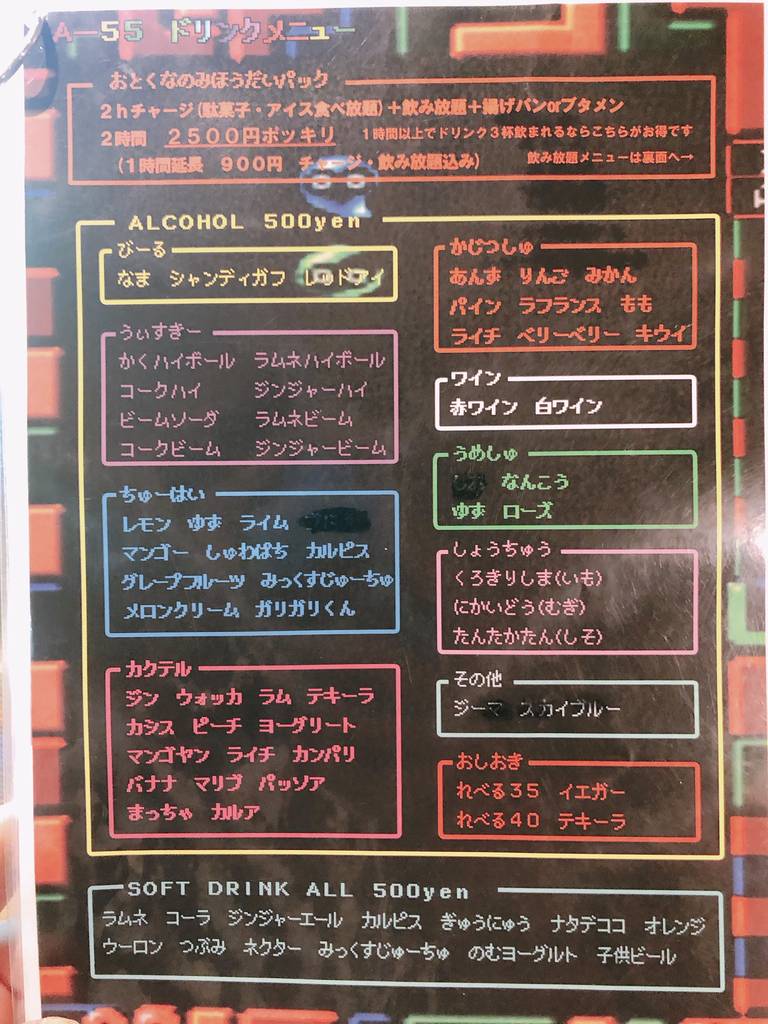 A-55 ドリンクメニュー
おとくなのみほうだいパック
2hチャージ(駄菓子・アイス食べ放題)+飲み放題+揚げパンorブタメン
2時間 2500円ポッキリ 1時間以上でドリンク3杯飲まれるならこちらがお得です
(1時間延長 900円 チャージ・飲み放題込み) 飲み放題メニューは裏面へ→
ALCOHOL 500yen
びーる
なま シャンディガフ レッドアイ
うぃすきー
かくハイボール ラムネハイボール
コークハイ ジンジャーハイ
ビームソーダ ラムネビーム
コークビーム ジンジャービーム
ちゅーはい
レモン ゆず ライム
マンゴー しゅわぱち カルピス
グレープフルーツ みっくすじゅーちゅ
メロンクリーム ガリガリくん
カクテル
ジン ウォッカ ラム テキーラ
カシス ピーチ ヨーグリート
マンゴヤン ライチ カンパリ
バナナ マリブ パッソア
まっちゃ カルア
かじつしゅ
あんず りんご みかん
パイン ラフランス もも
ライチ ベリーベリー キウイ
ワイン
赤ワイン 白ワイン
うめしゅ
なんこう
ゆず ローズ
しょうちゅう
くろきりしま(いも)
にかいどう(むぎ)
たんたかたん(しそ)
その他
ジーマ スカイブルー
おしおき
れべる35 イエガー
れべる40 テキーラ
SOFT DRINK ALL 500yen
ラムネ コーラ ジンジャーエール カルピス ぎゅうにゅう ナタデココ オレンジ
ウーロン つぶみ ネクター みっくすじゅーちゅ のむヨーグルト 子供ビール